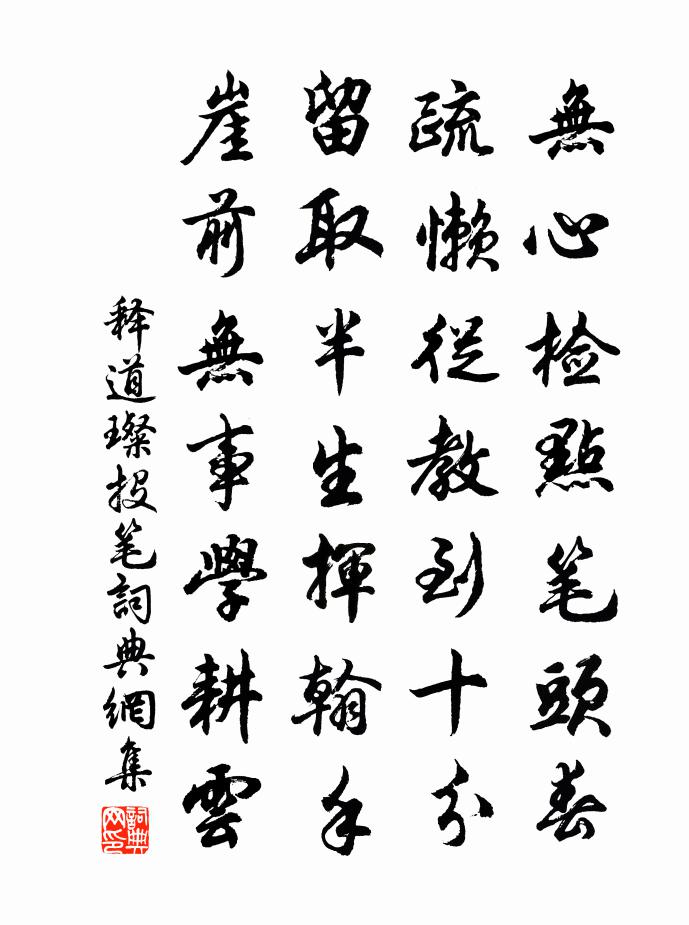 無心检點笔頭春
疏懒從教到十分
留取半生揮翰手
崖前無事學耕雲
释道璨投笔詞典網集
詞典网印